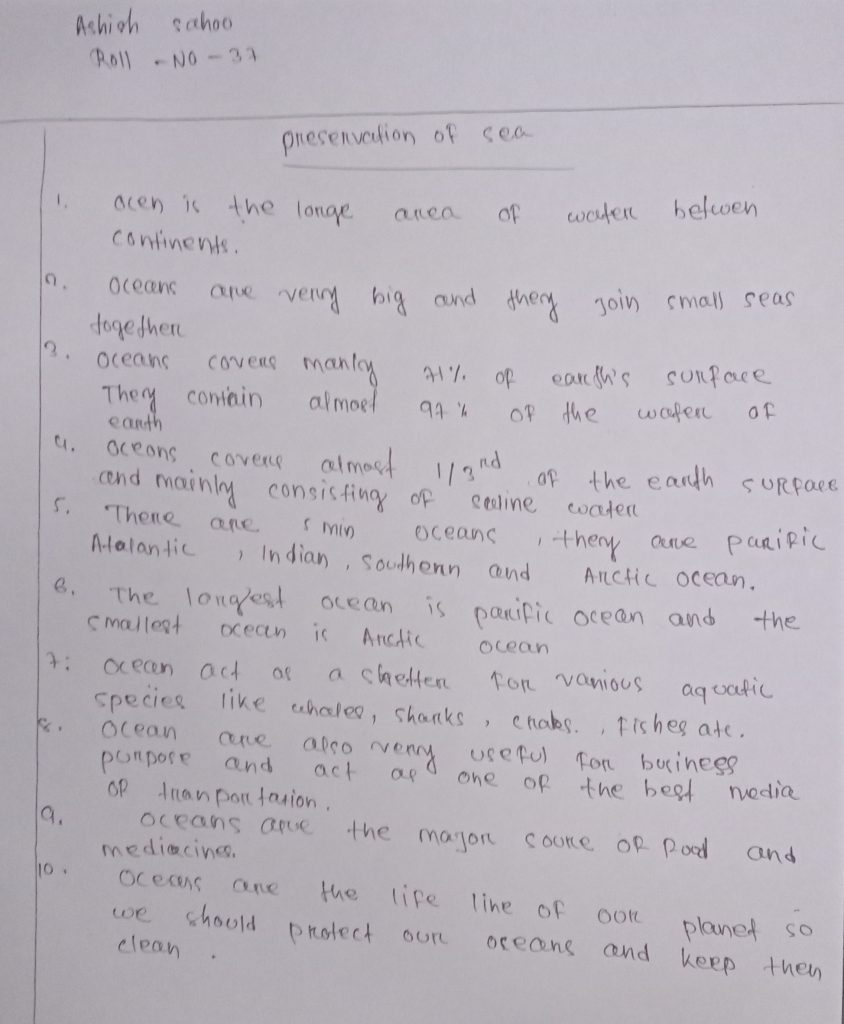 Ashish sahoo
Roll - NO - 37
preservation of sea
1. Ocen is the large area of water betwen
continents.
2. Oceans are very big and they join small seas
together
3. Oceans covers manly 71% of earth's surface
They contain almost 97% of the water of
earth
4. Oceans covers almost 1/3rd of the earth surface
and mainly consisting of saline water
5. There are 5 min oceans, they are pacific
Atalantic, Indian, southern and Arctic ocean.
6. The longest ocean is pacific ocean and the
smallest ocean is Arctic ocean
7: Ocean act as a sheltter for various aquatic
species like whales, sharks, crabs., fishes atc.
8. Ocean are also very useful for business
purpose and act as one of the best media
of tranportation.
9. Oceans are the major source of food and
mediacines.
10. Oceans are the life line of oor planet so
we should protect our oseans and keep then
clean.